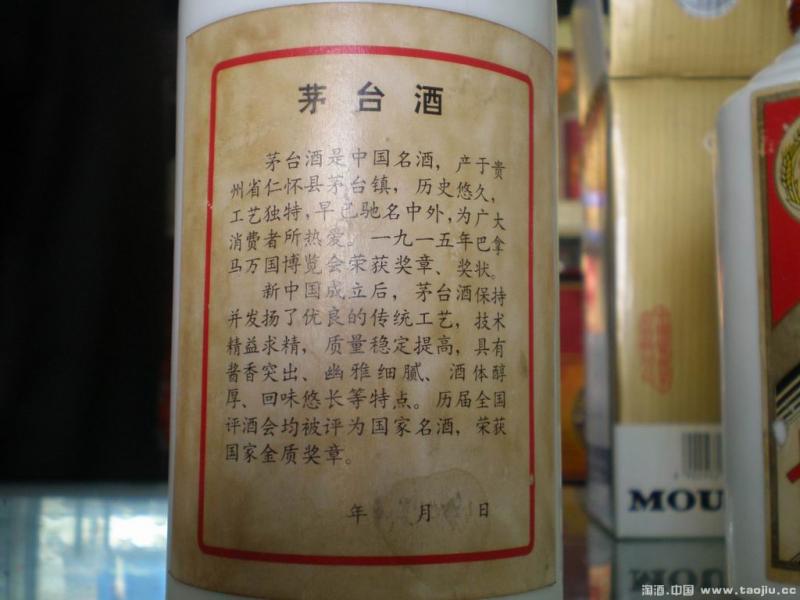 茅台酒
茅台酒是中国名酒，产于贵
州省仁怀县茅台镇，历史悠久，
工艺独特，早已驰名中外，为广大
消费者所热爱。一九一五年巴拿
马万国博览会荣获奖章、奖状。
新中国成立后，茅台酒保持
并发扬了优良的传统工艺，技术
精益求精，质量稳定提高，具有
酱香突出、幽雅细腻、酒体醇
厚、回味悠长等特点。历届全国
评酒会均被评为国家名酒，荣获
国家金质奖章。
年 月 日
MOU
淘酒.中国 www.taojiu.cc